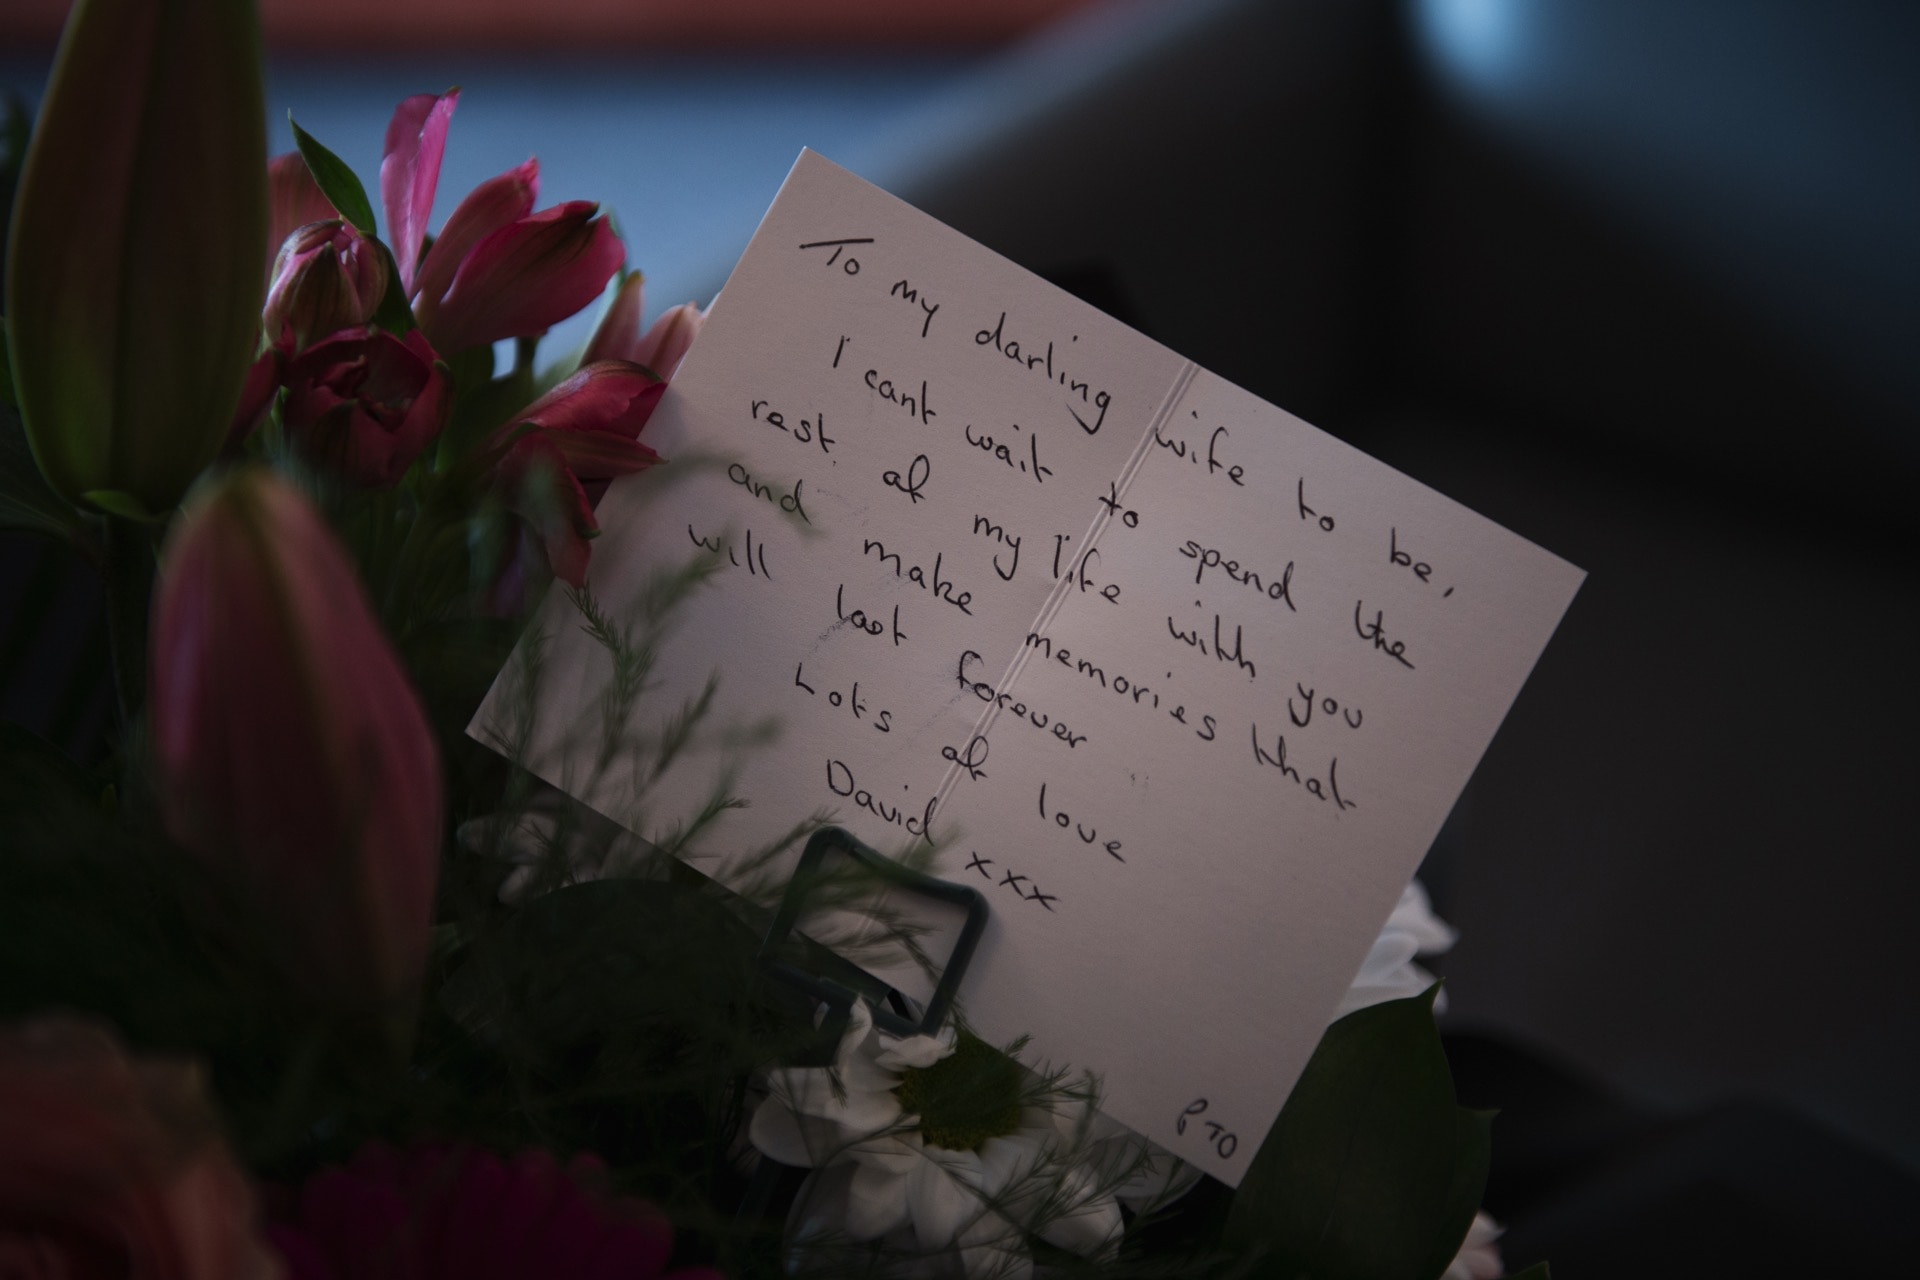 To my darling wife to be,
I cant wait to spend the
rest of my life with you
and make memories that
will last forever
Lots of love
David xxx
PTO